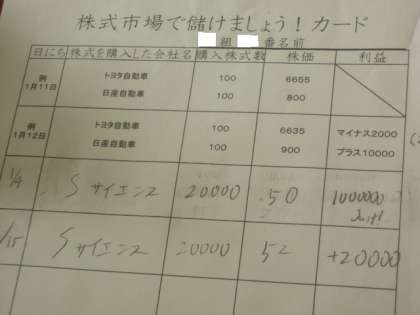 株式市場で儲けましょう！カード
組 番名前
日にち 株式を購入した会社名 購入株式数 株価 利益
例 1月11日 トヨタ自動車 100 6655
日産自動車 100 800
例 1月12日 トヨタ自動車 100 6635 マイナス2000
日産自動車 100 900 プラス10000
1/4 Sサイエンス 20000 50 1000000
Just!
/15 Sサイエンス 20000 52 +20000